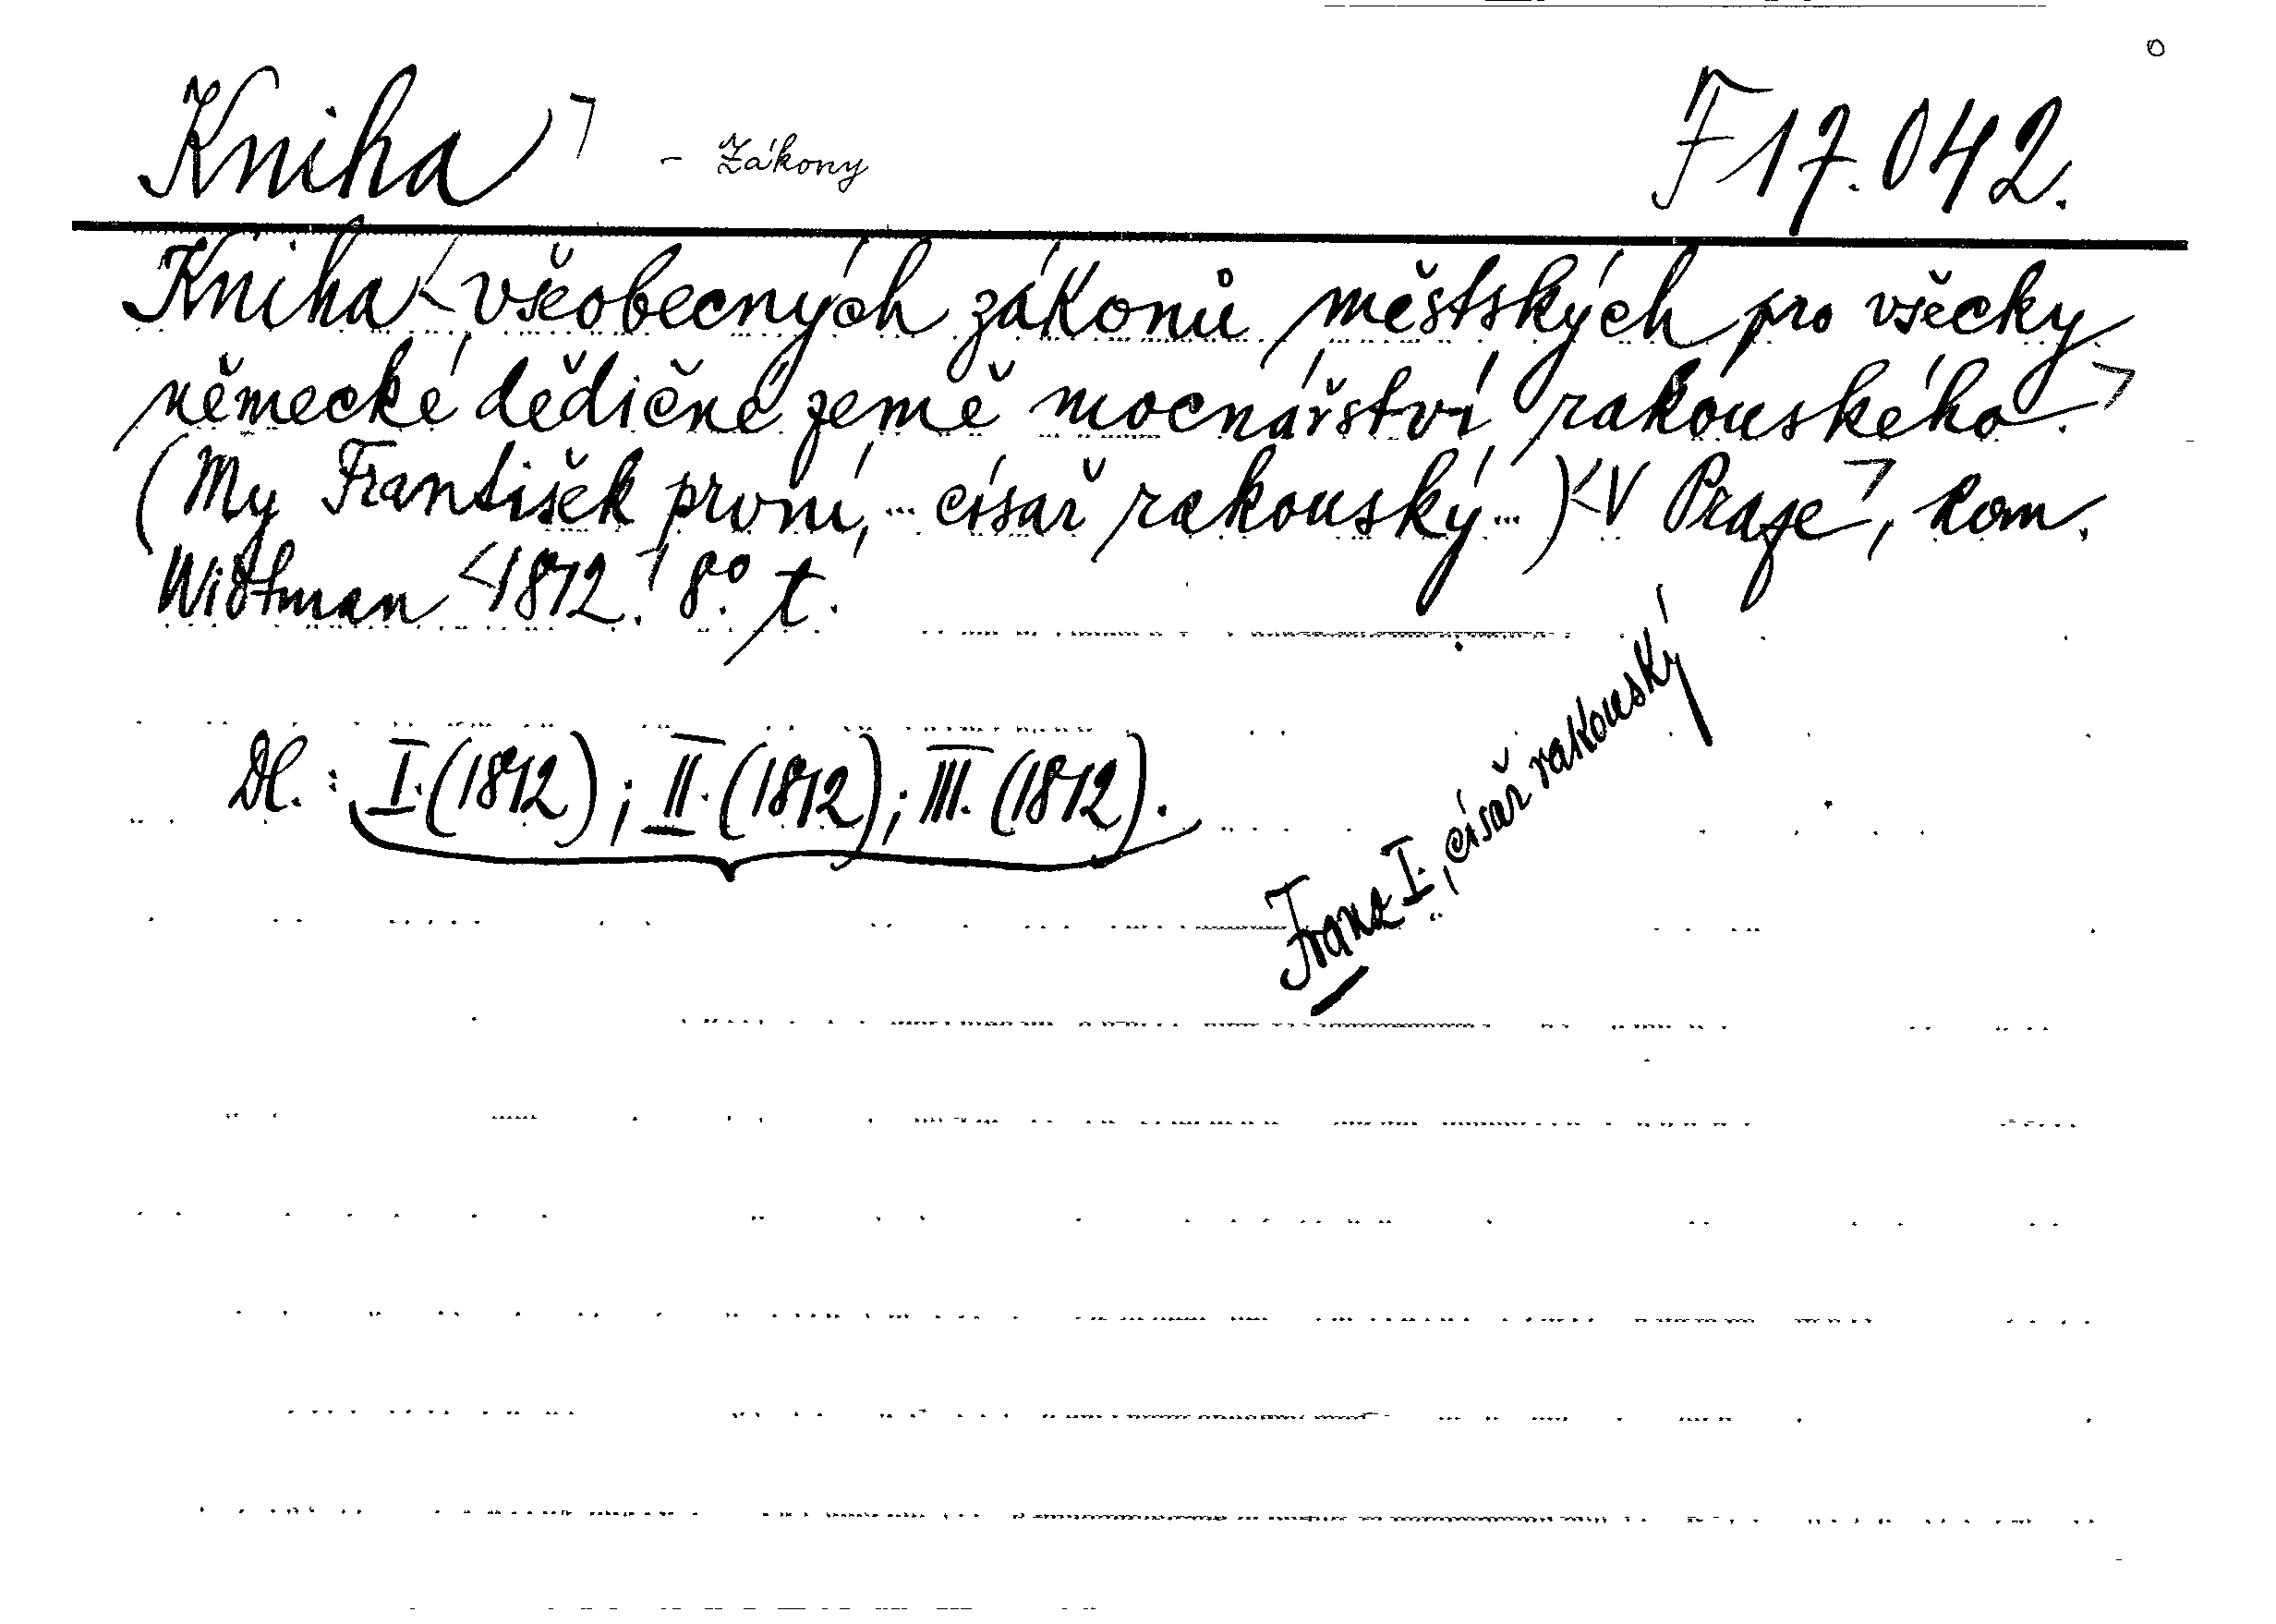 Kniha ⌝ - Zákony F 17.042.
Kniha <všeobecných zákonů městských pro všecky
německé dědičné země mocnářství rakouského. ⌝
(My František první, ... císař rakouský ... ) <V Praze ⌝, kom.
Widtman <1812. ⌝ 8° t.
Dl. : I. (1812) ; II. (1812) ; III. (1812).
Franz I., císař rakouský